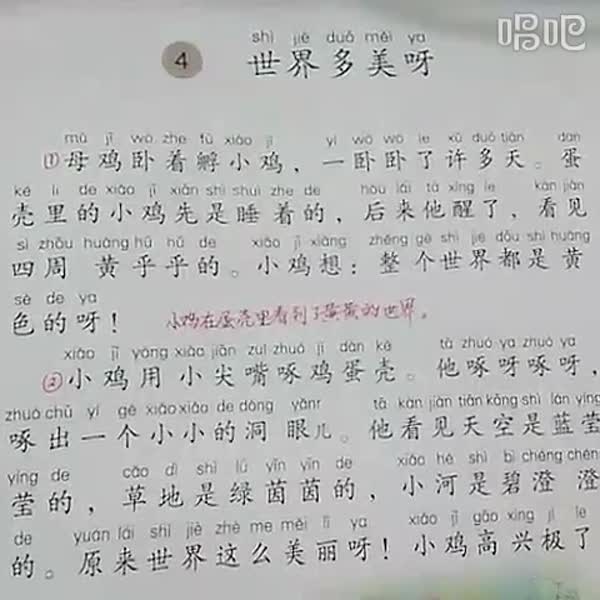 唱吧
shì jiè duō měi ya
4 世界多美呀
mǔ jī wò zhe fū xiǎo jī yí wò wò le xǔ duō tiān dàn
①母鸡卧着孵小鸡，一卧卧了许多天。蛋
ké lǐ de xiǎo jī xiān shì shuì zhe de hòu lái tā xǐng le kàn jiàn
壳里的小鸡先是睡着的，后来他醒了，看见
sì zhōu huáng hū hū de xiǎo jī xiǎng zhěng gè shì jiè dōu shì huáng
四周 黄乎乎的。小鸡想：整个世界都是黄
sè de ya
色的呀！ 小鸡在蛋壳里看到了黄黄的世界。
xiǎo jī yòng xiǎo jiān zuǐ zhuó jī dàn ké tā zhuó ya zhuó ya
②小鸡用 小尖嘴啄鸡蛋壳。他啄呀啄呀，
zhuó chū yí gè xiǎo xiǎo de dòng yǎnr tā kàn jiàn tiān kōng shì lán yíng
啄出一个小小的洞 眼儿。他看见天空是蓝莹
yíng de cǎo dì shì lǜ yīn yīn de xiǎo hé shì bì chéng chéng
莹的，草地是绿茵茵的，小河是碧澄 澄
de yuán lái shì jiè zhè me měi lì ya xiǎo jī gāo xìng jí le
的。原来世界这么美丽呀！小鸡高兴极了